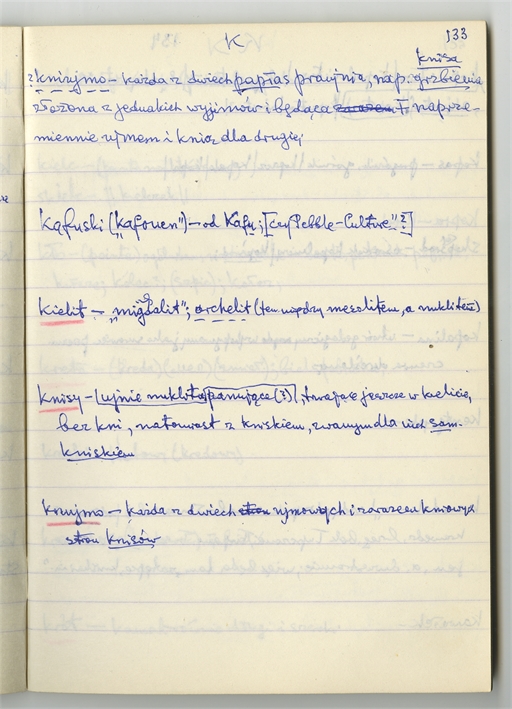 K 133
knisa
knizymo – każda z dwiech papías pracynia, nap. grzbienia
złożona z jednakich wyjimów i będąca zarazem T. naprze-
miennie ujmem i knią dla drugiej
Kąfuski („Kafouen”) – od Kafu; [czy Pebble-Culture"?]
kielit – „migdalit”; archelit (ten między mesolitem, a muklitem)
knisy – (ujnie muklita panujące(?)), trwające jeszcze w kielicie,
bez kni, natomiast z kniskiem, zwanym dla nich sam-
kniskiem
knujmo – każda z dwiech stron ujmowych i zarazem kniowych
stron knisów